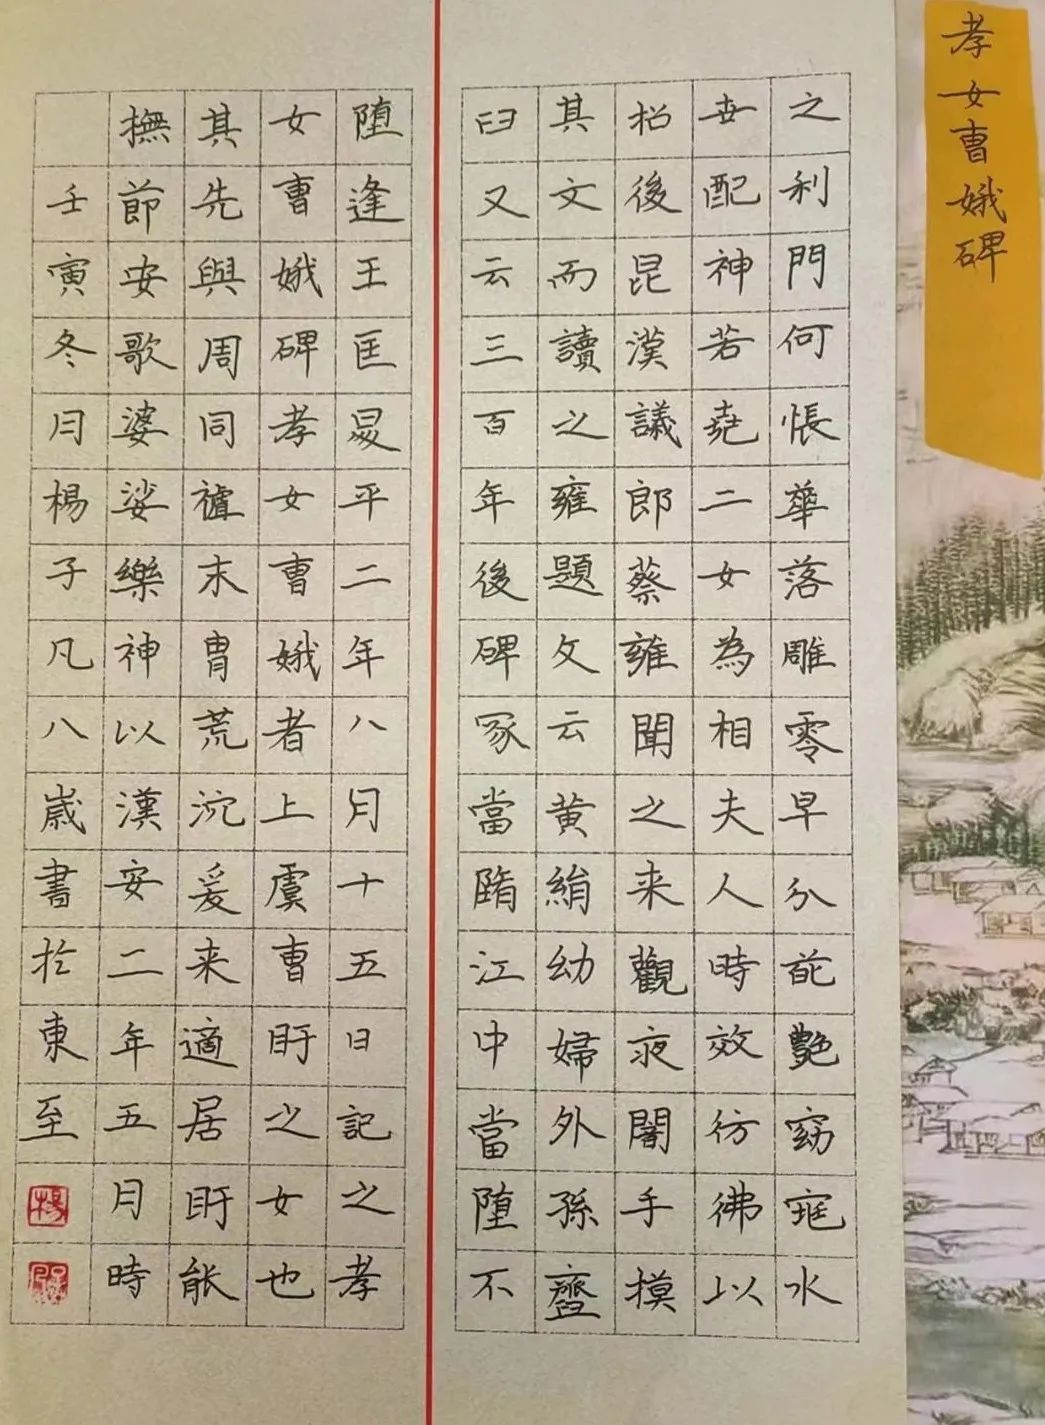 孝女曹娥碑
之利門何悵華落雕零早分葩艷窈窕水
世配神若堯二女為相夫人時效彷彿以
招後昆漢議郎蔡雍聞之来觀夜闇手摸
其文而讀之雍題文云黄絹幼婦外孫齏
臼又云三百年後碑冢當墮江中當墮不
墮逢王匡昇平二年八月十五日記之孝
女曹娥碑孝女曹娥者上虞曹盱之女也
其先與周同祖末胄荒沉爰来適居盱能
撫節安歌婆娑樂神以漢安二年五月時
壬寅冬月楊子凡八歲書於東至
楊